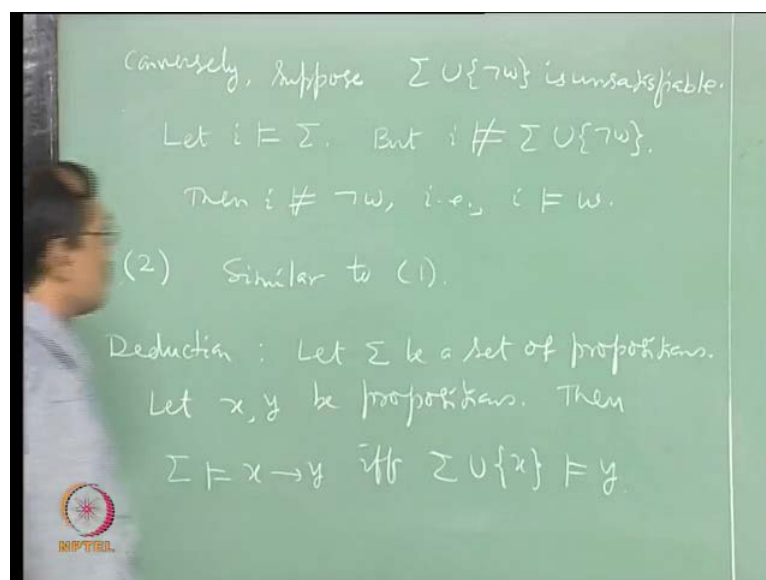 Conversely, suppose Σ ∪ {¬w} is unsatisfiable.
Let i ⊨ Σ. But i ⊭ Σ ∪ {¬w}.
Then i ⊭ ¬w, i.e., i ⊨ w.
(2) Similar to (1).
Deduction : Let Σ be a set of propositions.
Let x, y be propositions. Then
Σ ⊨ x → y iff Σ ∪ {x} ⊨ y.
NPTEL